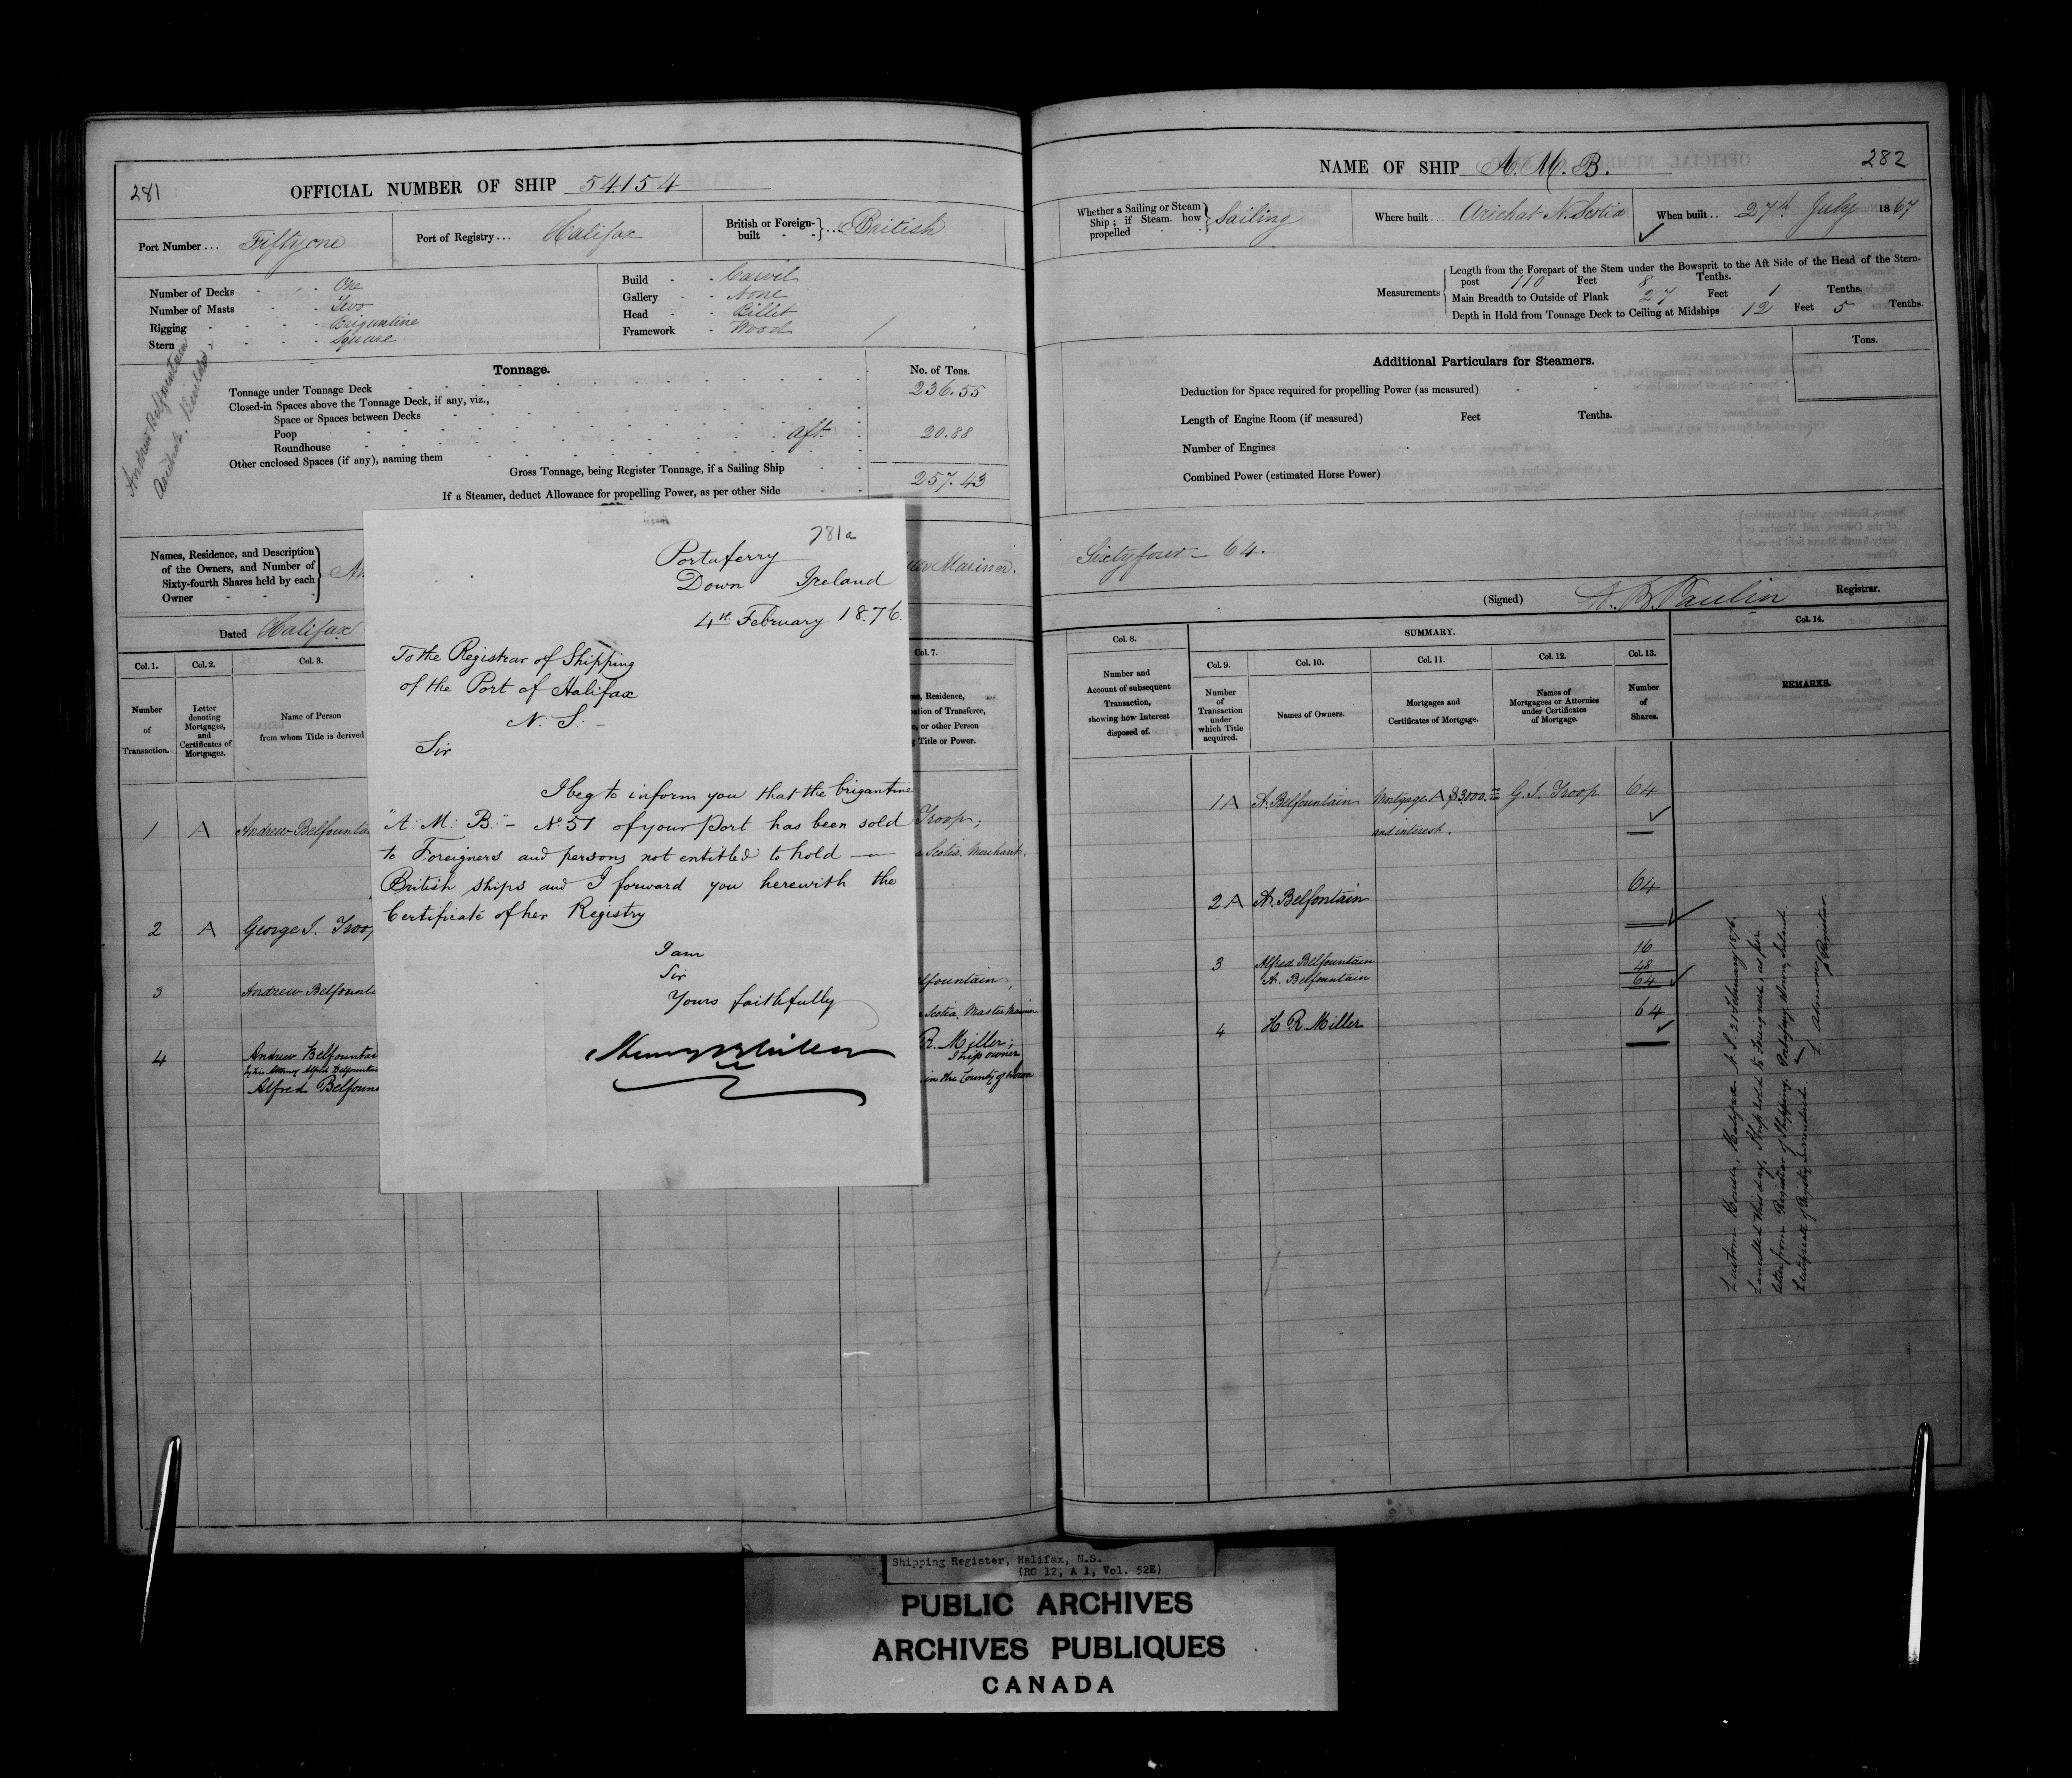 281
OFFICIAL NUMBER OF SHIP 54154
Port Number ... Fiftyone
Port of Registry ... Halifax
British or Foreign-built ... British
Number of Decks - One
Number of Masts - Two
Rigging - Brigantine
Stern - Square
Build - Carvel
Gallery - None
Head - Billet
Framework - Wood
Andrew Belfountain
Arichat, Builder
Tonnage.
No. of Tons.
Tonnage under Tonnage Deck 236.55
Closed-in Spaces above the Tonnage Deck, if any, viz.,
Space or Spaces between Decks
Poop aft 20.88
Roundhouse
Other enclosed Spaces (if any), naming them
Gross Tonnage, being Register Tonnage, if a Sailing Ship 257.43
If a Steamer, deduct Allowance for propelling Power, as per other Side
Names, Residence, and Description
of the Owners, and Number of
Sixty-fourth Shares held by each
Owner
An
Mariner.
Dated Halifax
Col. 1.
Col. 2.
Col. 3.
Col. 7.
Number
of
Transaction.
Letter
denoting
Mortgages,
and
Certificates of
Mortgages.
Name of Person
from whom Title is derived
Residence,
tion of Transferee,
or other Person
Title or Power.
1 A Andrew Belfounta
Troop;
Scotia. Merchant.
2 A George I. Troo
3 Andrew Belfount
lfountain,
Scotia. Master Mariner
4 Andrew Belfountai
by his Attorney Alfred Belfountain
Alfred Belfoun
R. Miller;
Ship owner
in the County of Down
281a
Portaferry
Down Ireland
4th February 1876.
To the Registrar of Shipping
of the Port of Halifax
N. S. -
Sir
I beg to inform you that the brigantine
"A. M. B." - No 51 of your Port has been sold
to Foreigners and persons not entitled to hold —
British ships and I forward you herewith the
Certificate of her Registry
I am
Sir
Yours faithfully
282
NAME OF SHIP A. M. B.
Whether a Sailing or Steam
Ship; if Steam how
propelled
Sailing
Where built ... Arichat N. Scotia
When built .. 27th July 1867
Measurements
Length from the Forepart of the Stem under the Bowsprit to the Aft Side of the Head of the Stern-
post 110 Feet 8 Tenths.
Main Breadth to Outside of Plank 27 Feet 1 Tenths.
Depth in Hold from Tonnage Deck to Ceiling at Midships 12 Feet 5 Tenths.
Additional Particulars for Steamers.
Tons.
Deduction for Space required for propelling Power (as measured)
Length of Engine Room (if measured) Feet Tenths.
Number of Engines
Combined Power (estimated Horse Power)
Sixty four - 64.
(Signed) Paulin Registrar.
Col. 8.
SUMMARY.
Col. 14.
Col. 9.
Col. 10.
Col. 11.
Col. 12.
Col. 13.
Number and
Account of subsequent
Transaction,
showing how Interest
disposed of.
Number
of
Transaction
under
which Title
acquired.
Names of Owners.
Mortgages and
Certificates of Mortgage.
Names of
Mortgagees or Attornies
under Certificates
of Mortgage.
Number
of
Shares.
REMARKS.
1A A. Belfountain Mortgage A $3000. G. I. Troop 64
and interest.
64
2A A. Belfontain
16
3 Alfred Belfountain 48
A. Belfountain 64
64
4 H R Miller
Customs House, Halifax N. S. 21 February 1876.
Cancelled this day, Ship sold to Foreigners as per
letter from Registrar of Shipping, Portaferry, Down, Ireland.
Certificate of Registry surrendered.
Registrar
Shipping Register, Halifax, N.S.
(RG 12, A 1, Vol. 52E)
PUBLIC ARCHIVES
ARCHIVES PUBLIQUES
CANADA